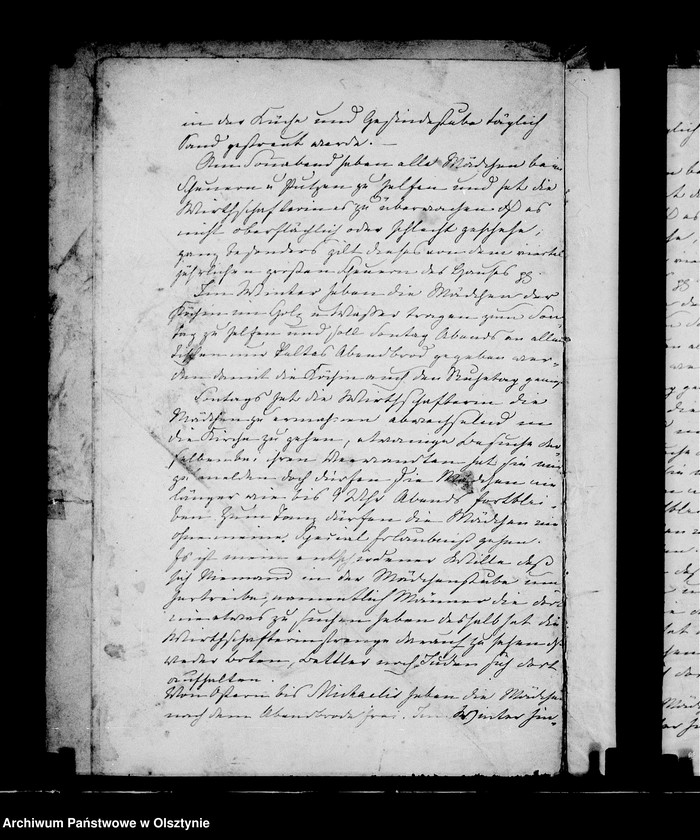 in der Küche und Gesindestube täglich
Sand gestreut werde. —
Am Sonnabend haben alle Mädchen beim
Scheuern u Putzen zu helfen und hat die
Wirthschafterin es zu überwachen daß es
nicht oberflächlich oder schlecht geschehe,
ganz besonders gilt dieses von dem viertel
jährlichen großen Scheuern des Hauses
Im Winter haben die Mädchen der
Köchin im Holz u Wasser tragen zum Son
tag zu helfen und soll Sontag Abends an allen
Tischen nur kaltes Abendbrod gegeben wer-
den damit die Köchin auch den Ruhetag
Sontags hat die Wirthschafterin die
Mädchen zu ermahnen abwechselnd in
die Kirche zu gehen, etwanige Besuche der-
selben bei ihren Verwandten hat sie mir
zu melden doch dürfen die Mädchen nie
länger wie bis 9 Uhr Abends fortblei-
ben zum Tanz dürfen die Mädchen nie
ohne meine Special Erlaubniß gehen.
Es ist mein entschiedener Wille daß
sich Niemand in der Mädchenstube um
hertreibe, namentlich Männer die dort
nie etwas zu suchen haben deshalb hat die
Wirthschafterin strenge darauf zu sehen daß
weder Boten, Bettler noch Juden sich dort
aufhalten.
Von Ostern bis Michaelis haben die Mädchen
nach dem Abendbrode frei. Im Winter hin-
Archiwum Państwowe w Olsztynie